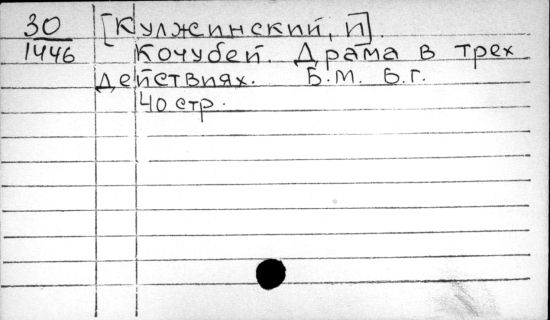 30
1446
[Кулжинский, И].
Кочубей. Драма в трех
действиях. Б.М. Б.Г.
40 стр.